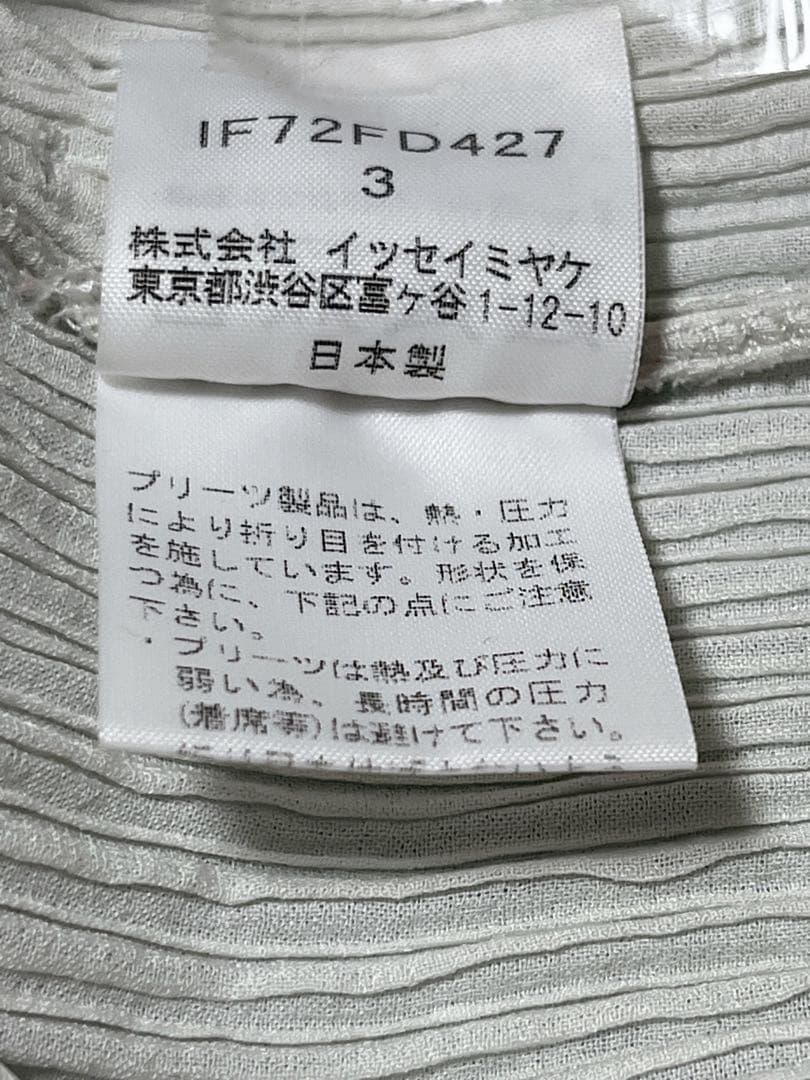 IF72FD427
3
株式会社 イッセイミヤケ
東京都渋谷区富ヶ谷1-12-10
日本製
プリーツ製品は、熱・圧力
により折り目を付ける加工
を施しています。形状を保
つ為に、下記の点にご注意
下さい。
・プリーツは熱及び圧力に
弱い為、長時間の圧力
(着席等)は避けて下さい。